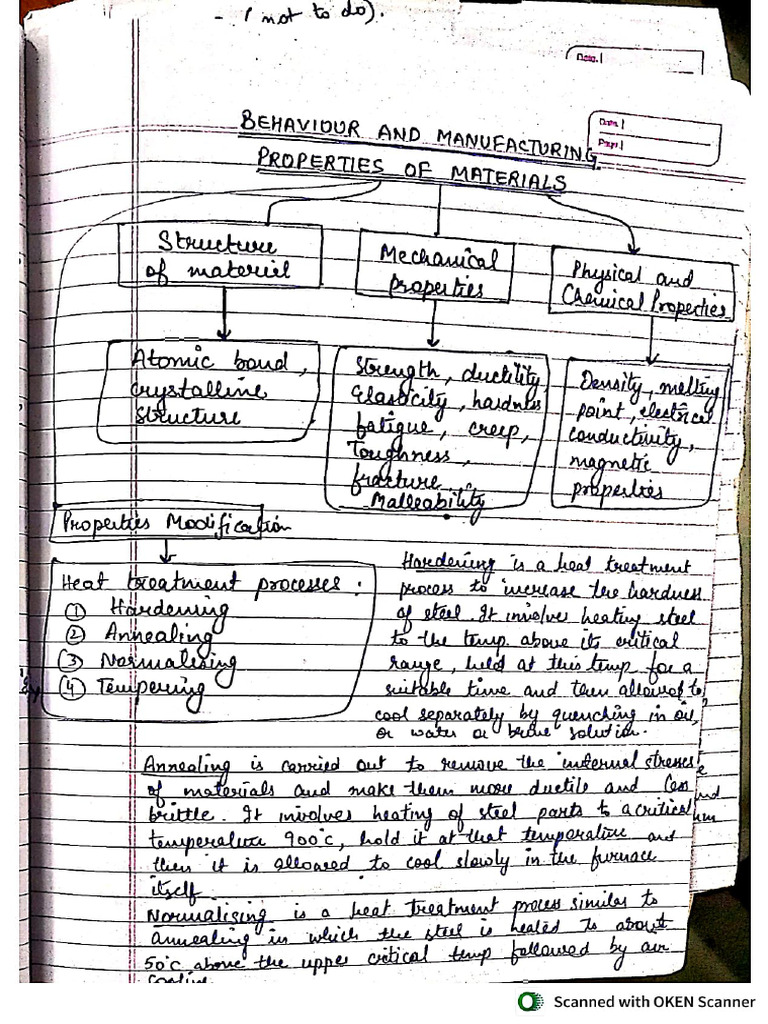 - (not to do).
Date. |
Date |
Page |
BEHAVIOUR AND MANUFACTURING
PROPERTIES OF MATERIALS
Structure
of materiel
Mechanical
properties
Physical and
Chemical Properties
Atomic bond,
crystalline
structure
Strength, ductility,
Elasticity, hardness
fatigue, creep,
Toughness,
fracture,
Malleability
Density, melting
point, electrical
conductivity,
magnetic
properties
Properties Modification
Heat treatment processes:
① Hardening
② Annealing
③ Normalising
④ Tempering
Hardening is a heat treatment
process to increase the hardness
of steel. It involves heating steel
to the temp. above its critical
range, held at this temp for a
suitable time and then allowed to
cool separately by quenching in oil,
or water or brine solution.
Annealing is carried out to remove the internal stresses
of materials and make them more ductile and less
brittle. It involves heating of steel parts to a critical
temperature 900°c, hold it at that temperature and
then it is allowed to cool slowly in the furnace
itself.
Normalising is a heat treatment process similar to
annealing in which the steel is heated to about
50°c above the upper critical temp followed by air
cooling
Scanned with OKEN Scanner